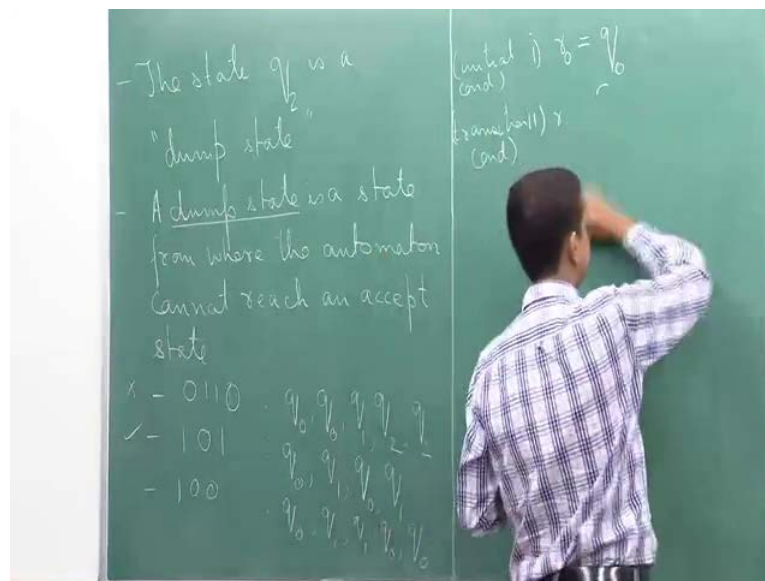 - The state q2 is a
"dump state"
- A dump state is a state
from where the automaton
cannot reach an accept
state
x - 0110 . q0, q0, q1, q2, q2
✓ - 101 q0, q1, q0, q1
- 100 . q0, q1, q1, q0, q0
(initial i) r0 = q0
cond)
(transition ii) r
cond)